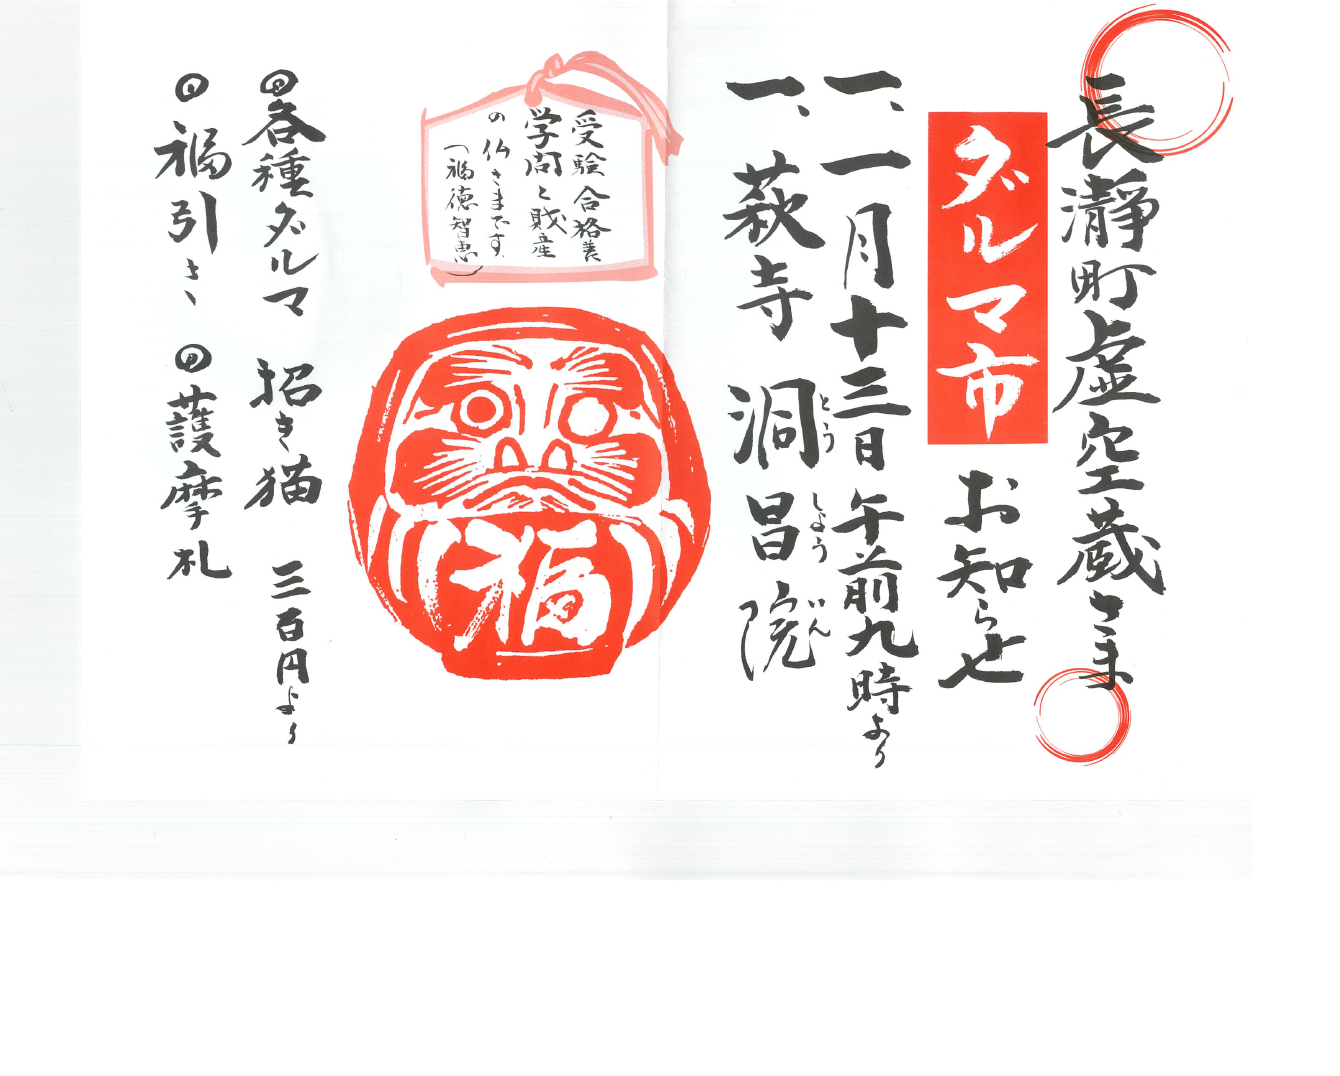 長瀞町虚空蔵さま
ダルマ市
お知らせ
一、一月十三日 午前九時より
一、萩寺 洞昌院
とう
しょう
いん
受験合格
学問と財産
の仏さまです。
(福徳智恵)
福
◎各種ダルマ 招き猫 三百円より
◎福引き、◎護摩札